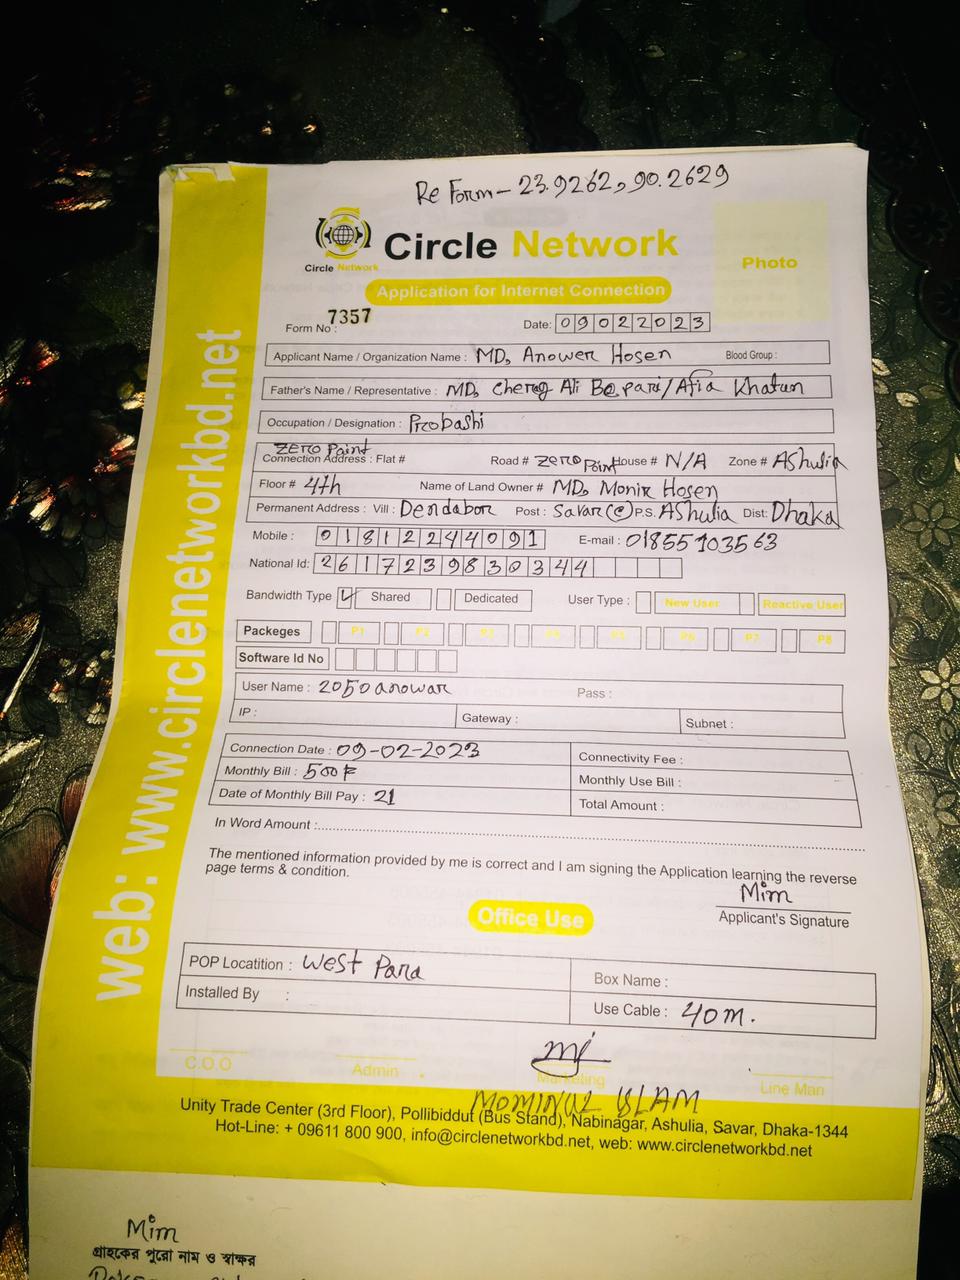 Re Form - 23.9262, 90.2629
Circle Network
Circle Network
Photo
Application for Internet Connection
Form No : 7357
Date: 09022023
Applicant Name / Organization Name : MD, Anower Hosen Blood Group :
Father's Name / Representative : MD, Chereg Ali Bepari/Afia Khatun
Occupation / Designation : Probashi
Zero Point
Connection Address : Flat # Road # Zero Point House # N/A Zone # Ashulia
Floor # 4th Name of Land Owner # MD, Monir Hosen
Permanent Address : Vill : Dendabor Post : Savar(C) P.S. Ashulia Dist: Dhaka
Mobile : 01812244091 E-mail : 01855103563
National Id: 2617239830344
Bandwidth Type Shared Dedicated User Type : New User Reactive User
Packeges P1 P2 P3 P4 P5 P6 P7 P8
Software Id No
User Name : 2050anowar Pass :
IP : Gateway : Subnet :
Connection Date : 09-02-2023 Connectivity Fee :
Monthly Bill : 500৳ Monthly Use Bill :
Date of Monthly Bill Pay : 21 Total Amount :
In Word Amount :
The mentioned information provided by me is correct and I am signing the Application learning the reverse
page terms & condition.
Mim
Applicant's Signature
Office Use
POP Locatition : West Para Box Name :
Installed By : Use Cable : 40m.
C.O.O Admin Marketing Line Man
MOMINUL ISLAM
Unity Trade Center (3rd Floor), Pollibiddut (Bus Stand), Nabinagar, Ashulia, Savar, Dhaka-1344
Hot-Line: + 09611 800 900, info@circlenetworkbd.net, web: www.circlenetworkbd.net
web: www.circlenetworkbd.net
Mim
গ্রাহকের পুরো নাম ও স্বাক্ষর